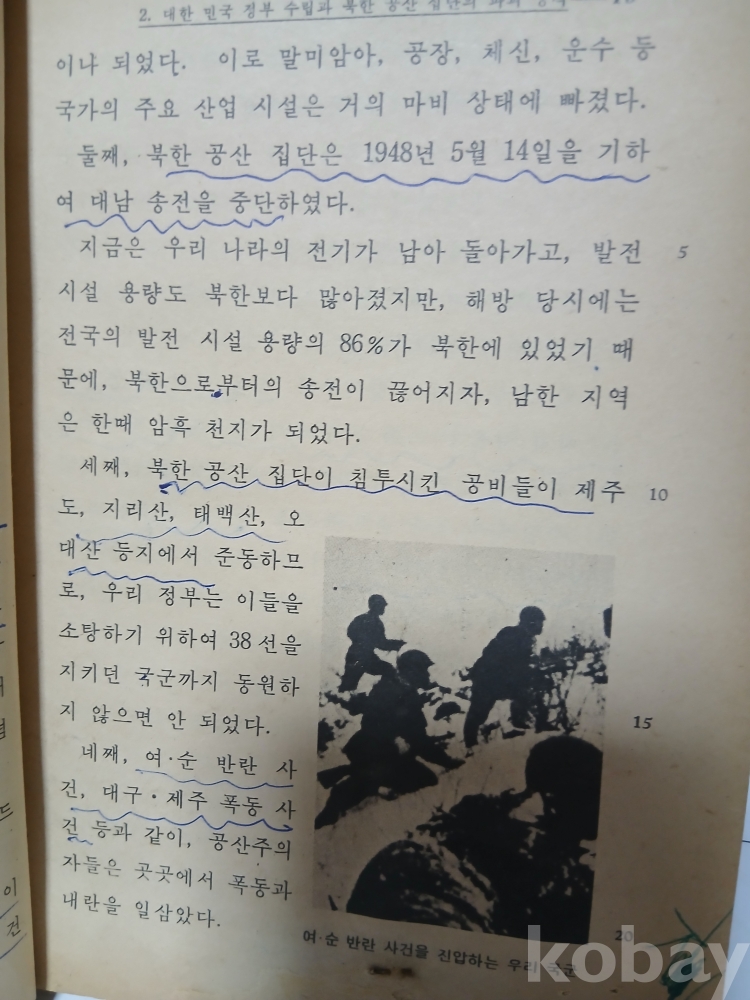 2. 대한 민국 정부 수립과 북한 공산 집단의
이나 되었다. 이로 말미암아, 공장, 체신, 운수 등
국가의 주요 산업 시설은 거의 마비 상태에 빠졌다.
둘째, 북한 공산 집단은 1948년 5월 14일을 기하
여 대남 송전을 중단하였다.
지금은 우리 나라의 전기가 남아 돌아가고, 발전 5
시설 용량도 북한보다 많아졌지만, 해방 당시에는
전국의 발전 시설 용량의 86%가 북한에 있었기 때
문에, 북한으로부터의 송전이 끊어지자, 남한 지역
은 한때 암흑 천지가 되었다.
세째, 북한 공산 집단이 침투시킨 공비들이 제주 10
도, 지리산, 태백산, 오
대산 등지에서 준동하므
로, 우리 정부는 이들을
소탕하기 위하여 38선을
지키던 국군까지 동원하
지 않으면 안 되었다. 15
네째, 여·순 반란 사
건, 대구·제주 폭동 사
건 등과 같이, 공산주의
자들은 곳곳에서 폭동과
내란을 일삼았다. 20
여·순 반란 사건을 진압하는 우리 국군
kobay